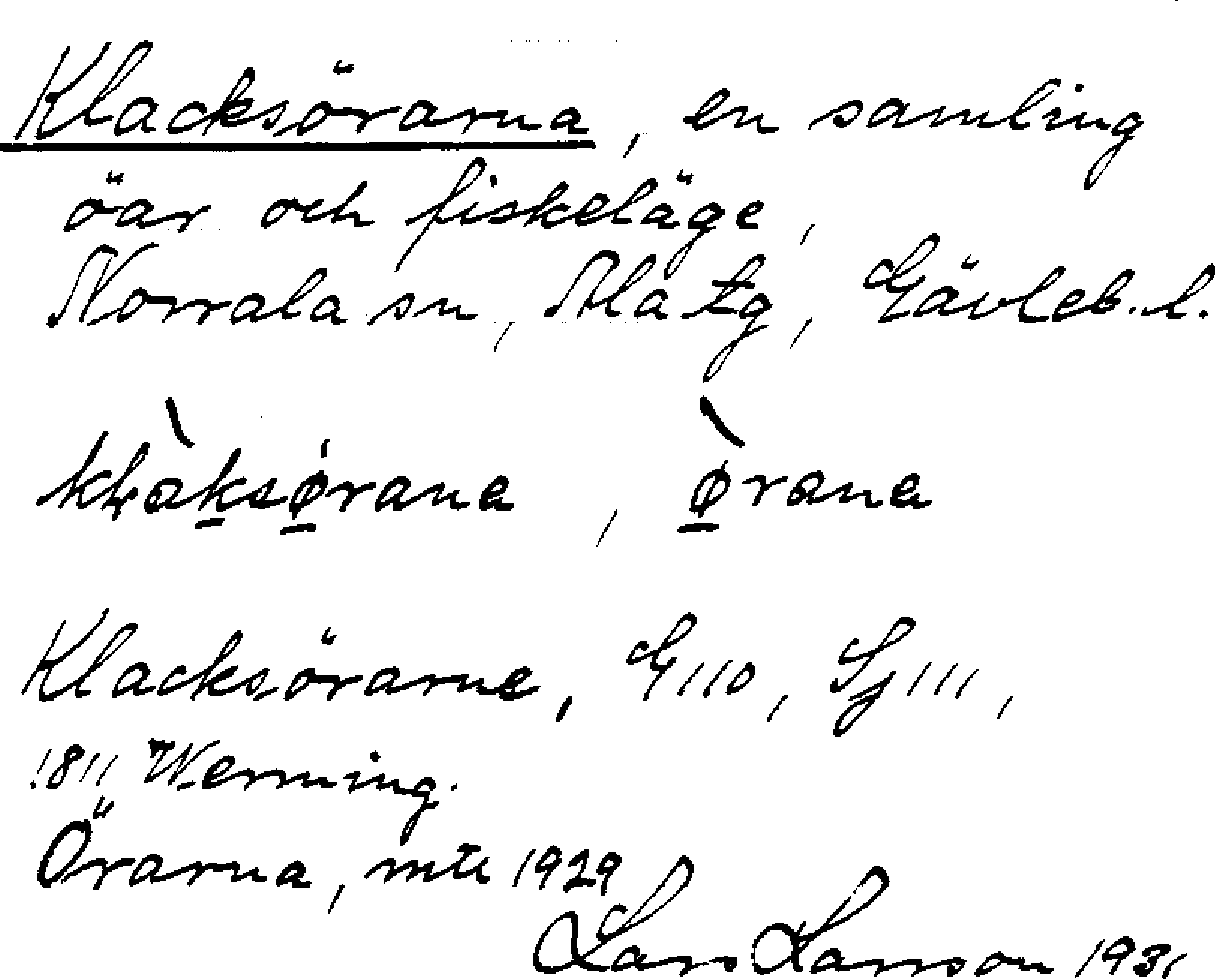 Klacksörarna, en samling
öar och fiskeläge,
Norrala sn, Ala tg, Gävleb. l.
kḷàksørana, ø̀rana
Klacksörarne, G110, Sj111,
1811 Werming.
Örarna, mtl 1929
Lars Larsson 1931